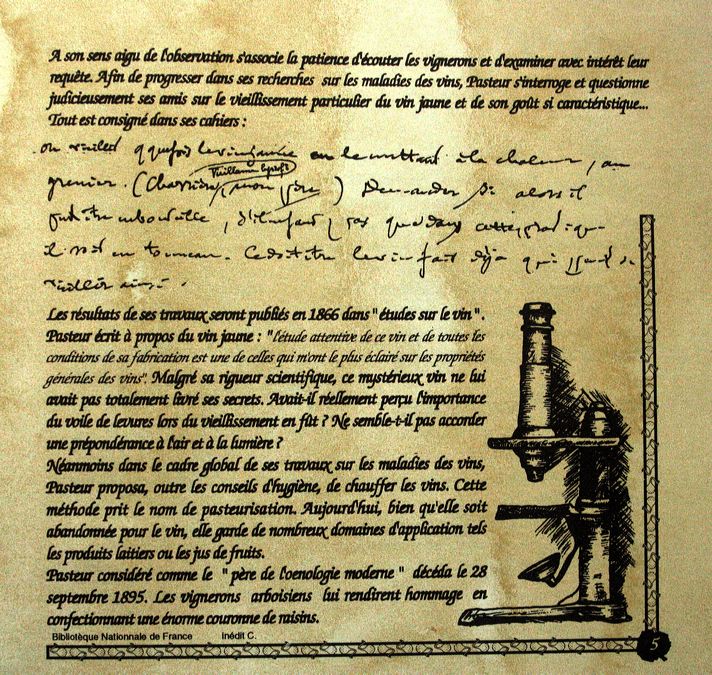 A son sens aigu de l'observation s'associe la patience d'écouter les vignerons et d'examiner avec intérêt leur
requête. Afin de progresser dans ses recherches sur les maladies des vins, Pasteur s'interroge et questionne
judicieusement ses amis sur le vieillissement particulier du vin jaune et de son goût si caractéristique...
Tout est consigné dans ses cahiers :
on vieillit quefois le vin jaune en le mettant à la chaleur, au
grenier. (Charrière, mon père) Demander si alors il
il est en tonneau. le vin fait déjà qui
vieillir ainsi.
Les résultats de ses travaux seront publiés en 1866 dans " études sur le vin ".
Pasteur écrit à propos du vin jaune : "l'étude attentive de ce vin et de toutes les
conditions de sa fabrication est une de celles qui m'ont le plus éclairé sur les propriétés
générales des vins". Malgré sa rigueur scientifique, ce mystérieux vin ne lui
avait pas totalement livré ses secrets. Avait-il réellement perçu l'importance
du voile de levures lors du vieillissement en fût ? Ne semble-t-il pas accorder
une prépondérance à l'air et à la lumière ?
Néanmoins dans le cadre global de ses travaux sur les maladies des vins,
Pasteur proposa, outre les conseils d'hygiène, de chauffer les vins. Cette
méthode prit le nom de pasteurisation. Aujourd'hui, bien qu'elle soit
abandonnée pour le vin, elle garde de nombreux domaines d'application tels
les produits laitiers ou les jus de fruits.
Pasteur considéré comme le " père de l'oenologie moderne " décéda le 28
septembre 1895. Les vignerons arboisiens lui rendirent hommage en
confectionnant une énorme couronne de raisins.
Bibliotèque Nationnale de France Inédit C.
5